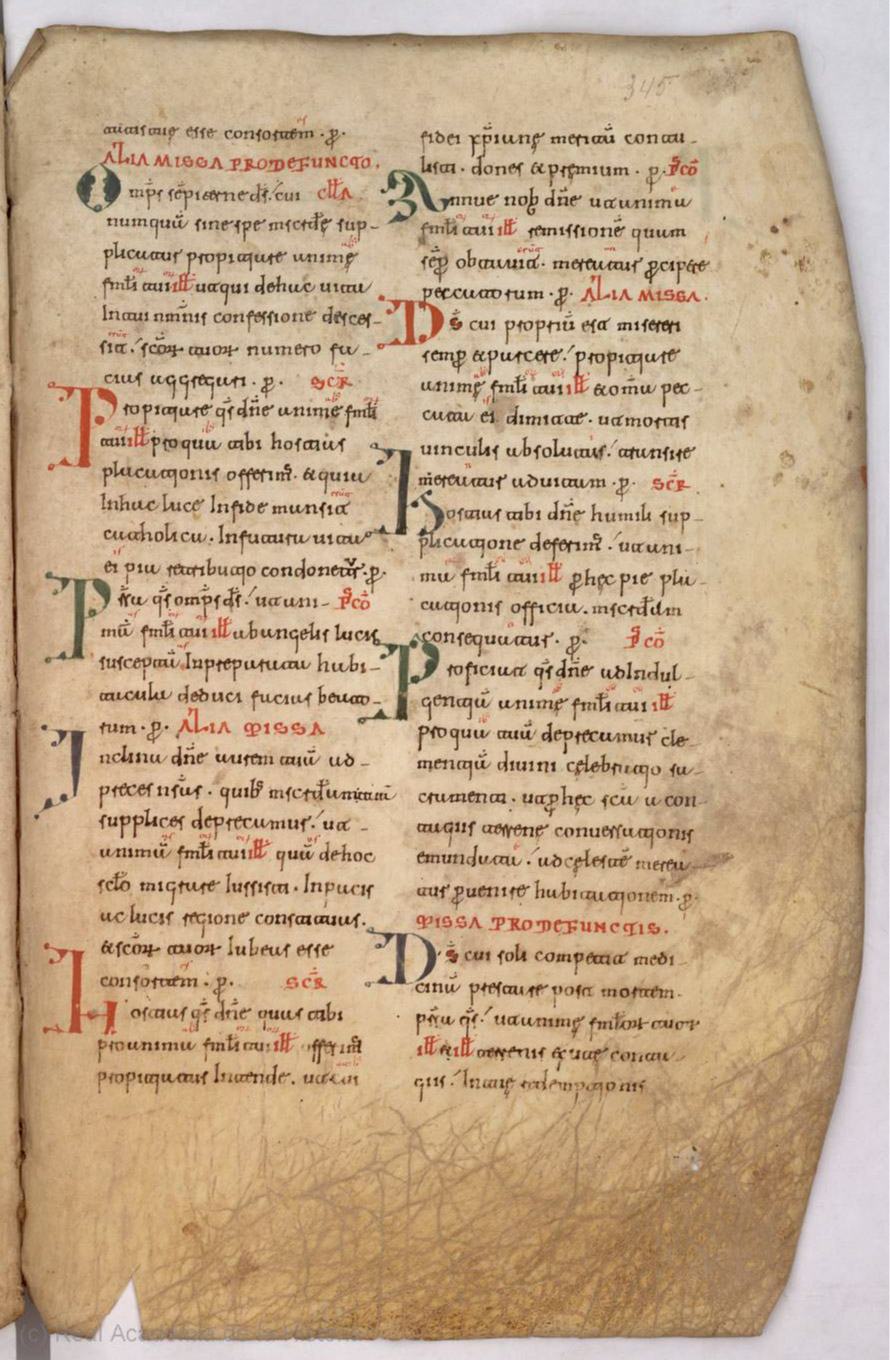 345
tatisque esse consortem̄ · ꝑ ·
ALIA MISSA PRO DEFUNCTO.
Omp̄s sēpiterne d̄s · cui cłła
numquā sine spe misc̄de sup-
plicatus propitiare anime
fm̄li tui iłł ut qui de hac uita
In tui nm̄nis confessione disces-
sit · sc̄orum tuorum numero fa-
cias aggregari · ꝑ · SCR̄
Propitiare q̄s dñe anime fm̄li
tui iłł pro qua tibi hostias
placationis offerim̄ · & quia
In hac luce In fide mansit
catholica · In futura uita
ei pia retributio condonetur · ꝑ ·
Prēsta q̄s omp̄s d̄s · ut ani- P̄CŌ
mā fm̄li tui iłł ab angelis lucis
susceptā In preparata habi-
tacula deduci facias beato-
rum · ꝑ · ALIA MISSA
Inclina dñe aurem tuā ad
preces nr̄as · quibꝰ misc̄dam tuam
supplices deprecamur · ut
animā fm̄li tui iłł quā de hoc
sc̄lo migrare Iussisti · In pacis
ac lucis regione constituas ·
& sc̄orum tuorum Iubeas esse
consortem̄ · ꝑ · SCR̄
Hostias q̄s dñe quas tibi
pro anima fm̄li tui iłł offerim̄
propitiatus Intende · ut cui
fidei xp̄iane meritū contu-
listi · dones & premium · ꝑ · P̄CŌ
Annue nob̄ dñe ut anima
fm̄li tui iłł remissionē quam
sēꝑ obtauit · mereatur ꝑcipere
peccatorum · ꝑ · ALIA MISSA ·
D̄s cui propriū est misereri
semꝑ & parcere · propitiare
anime fm̄li tui iłł & om̄a pec-
cata ei dimitte · ut mortis
uinculis absolutus · transire
mereatur ad uitam · ꝑ · SCR̄
Hostias tibi dñe humili sup-
plicatione deferim̄ · ut ani-
ma fm̄li tui iłł ꝑ hec pie pla-
cationis officia · misc̄dam
consequatur · ꝑ · P̄CŌ
Proficiat q̄s dñe ad Indul-
gentiā anime fm̄li tui iłł
pro qua tuā deprecamur cle-
mentiā diuini celebratio sa-
cramenti · ut ꝑ hec sc̄a a con
tagiis terrene conuersationis
emundata · ad celestē merea-
tur ꝑuenire habitationem · ꝑ ·
MISSA PRO DEFUNCTIS.
D̄s cui soli competit medi
cinā prestare post mortem ·
prēsta q̄s · ut anime fm̄lorum tuorum
iłł & iłł terrenis exute conta-
giis · In tue redemptionis
(c) Real Academia de la Historia